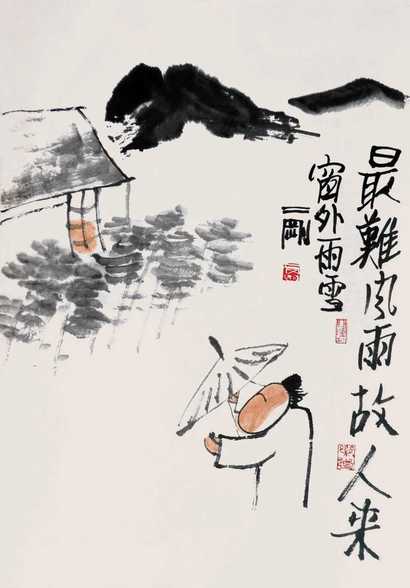 最難風雨故人来
窗外雨雪
一剛